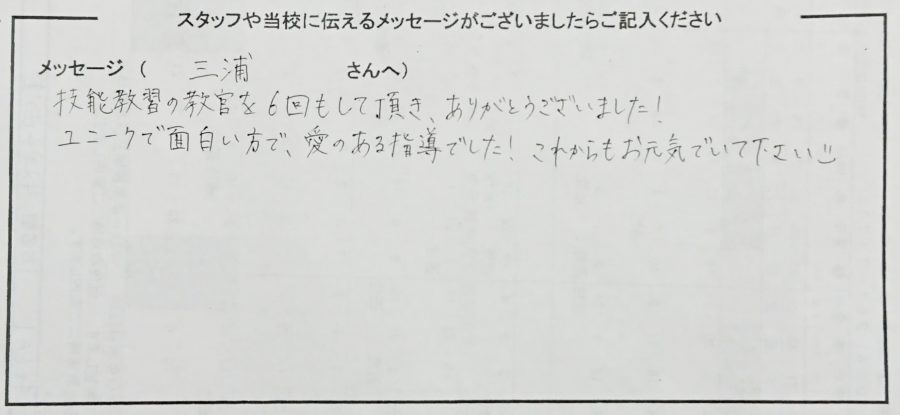 スタッフや当校に伝えるメッセージがございましたらご記入ください
メッセージ ( 三浦 さんへ)
技能教習の教官を6回もして頂き、ありがとうございました!
ユニークで面白い方で、愛のある指導でした! これからもお元気でいて下さい